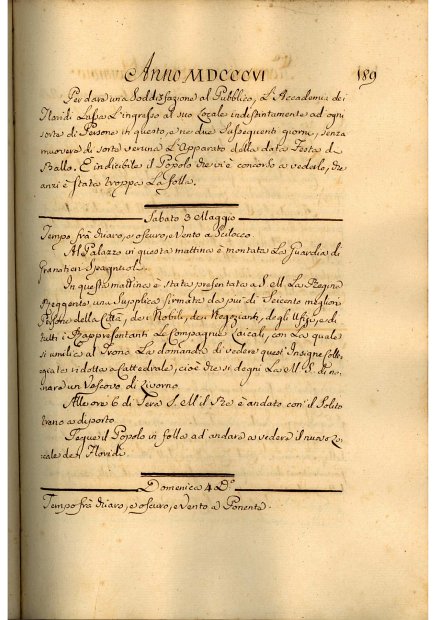 Anno MDCCCVI 189
Per dare una soddisfazione al Pubblico, L'Accademia dei
Floridi lassa L'ingresso al suo Locale indistintamente ad ogni
sorte di Persone in questo, e ne due sussequenti giorni, senza
muovere di sorte veruna L'Apparato della data Festa di
Ballo. È indicibile il Popolo che vi è concorso a vederlo, che
anzi è stata troppa La folla.
Sabato 3 Maggio
Tempo frà chiaro, e oscuro, e vento a Scilocco.
Al Palazzo in questa mattina è montata La Guardia di
Granatieri Spagnuoli.
In questa mattina è stata presentata a S. M. La Regina
Reggente una supplica firmata da più di seicento migliori
Persone della Città, dei Nobili, dei Negozianti, degli Ufizi, e di
tutti i Rappresentanti Le Compagnie Laicali, con La quale
si umilia al Trono La domanda di vedere quest'Insigne Coll-
egiata ridotta a Cattedrale, cioè che si degni La M. S. di no-
minare un Vescovo di Livorno.
Alle ore 6 di sera S. M. il Rè è andato con il solito
treno a diporto
Segue il Popolo in folla ad andare a vedere il nuovo Lo-
cale dei Floridi.
Domenica 4 Do.
Tempo frà chiaro, e oscuro, e vento a Ponente.